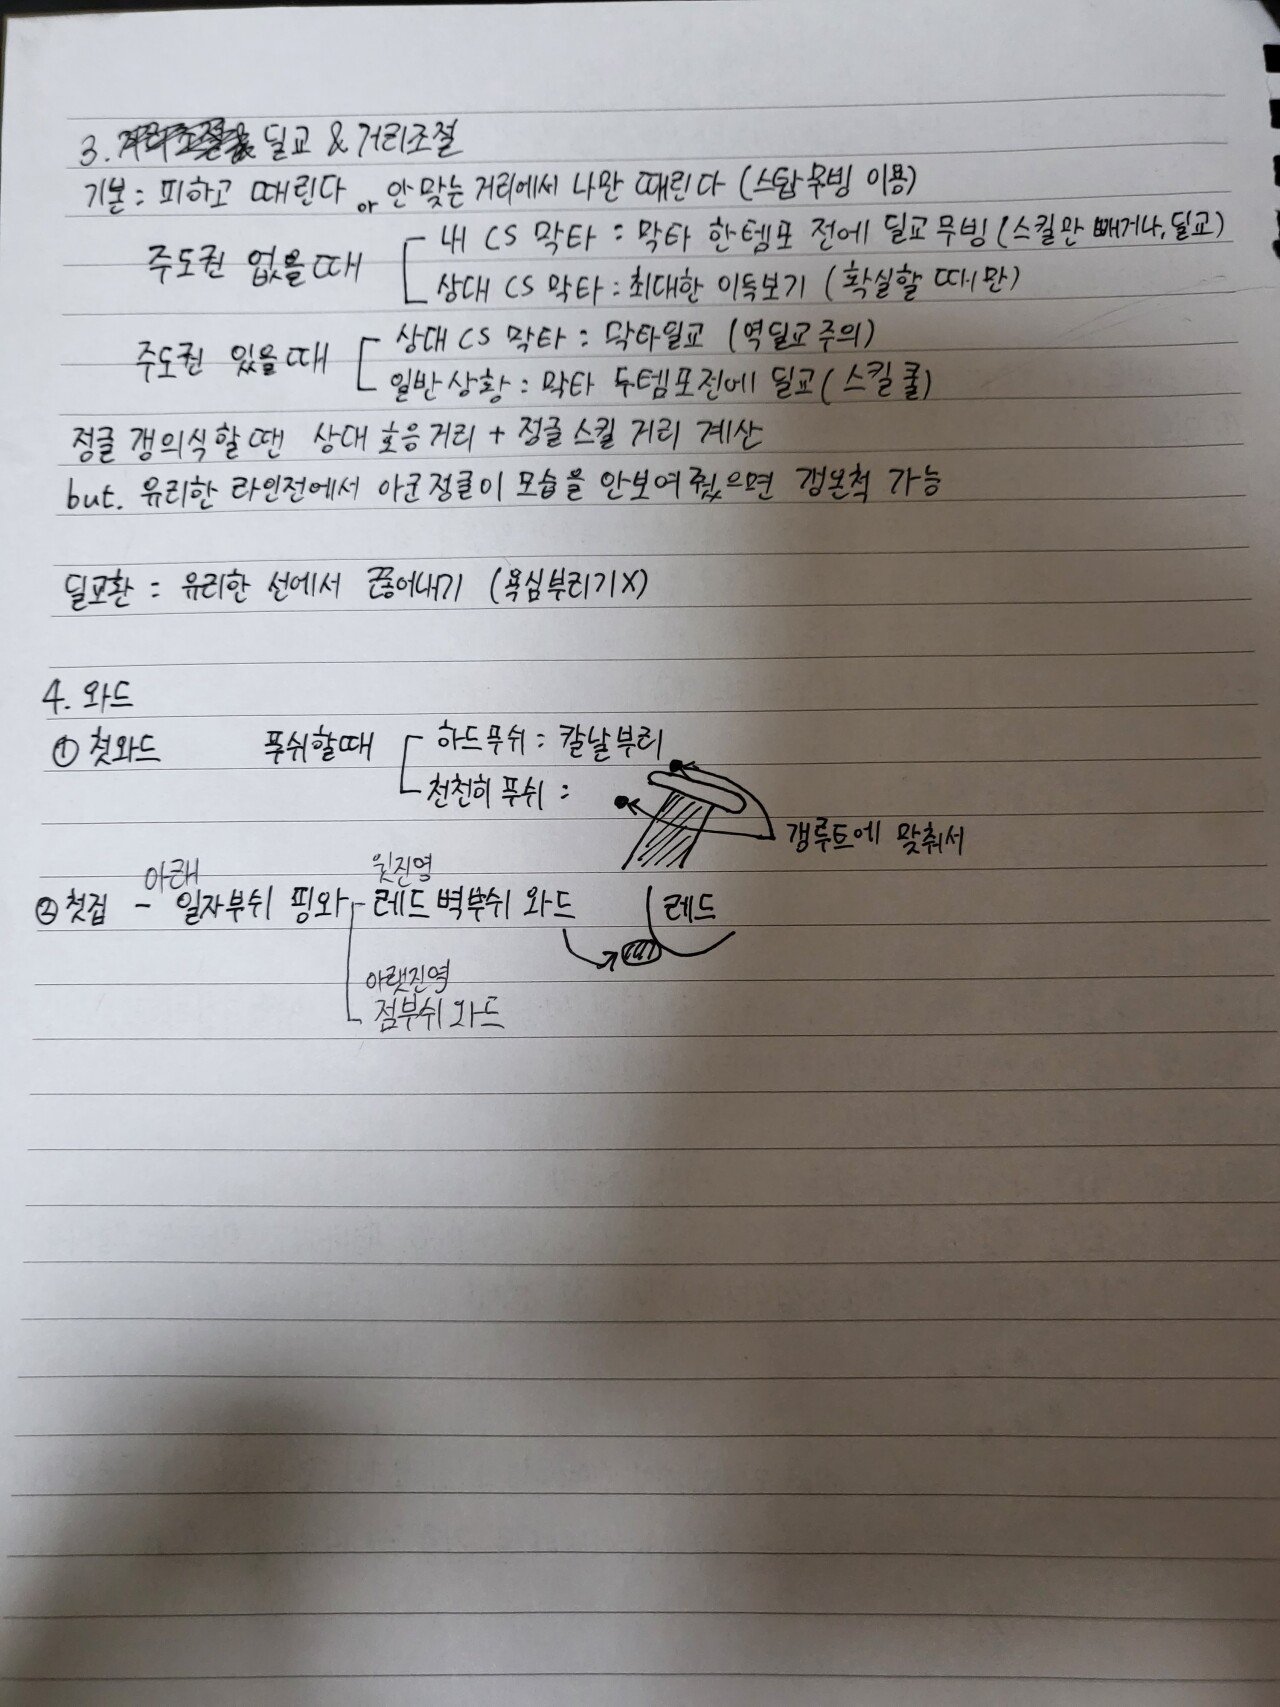 3. 딜교 & 거리조절
기본 : 피하고 때린다 or 안 맞는 거리에서 나만 때린다 (스탑무빙 이용)
주도권 없을때
내 CS 막타 : 막타 한템포 전에 딜교무빙 (스킬만 빼거나, 딜교)
상대 CS 막타 : 최대한 이득보기 (확실할 때만)
주도권 있을때
상대 CS 막타 : 막타딜교 (역딜교주의)
일반상황 : 막타 두템포전에 딜교 (스킬쿨)
정글 갱의식할땐 상대 호응거리 + 정글스킬 거리 계산
but. 유리한 라인전에서 아군정글이 모습을 안보여줬으면 갱온척 가능
딜교환 = 유리한 선에서 끊어내기 (욕심부리기X)
4. 와드
① 첫와드 푸쉬할때
하드푸쉬 : 칼날부리
천천히 푸쉬 :
갱루트에 맞춰서
② 첫집 - 아래 일자부쉬 핑와 - 윗진영 레드 벽부쉬 와드
레드
아랫진영
점부쉬 와드